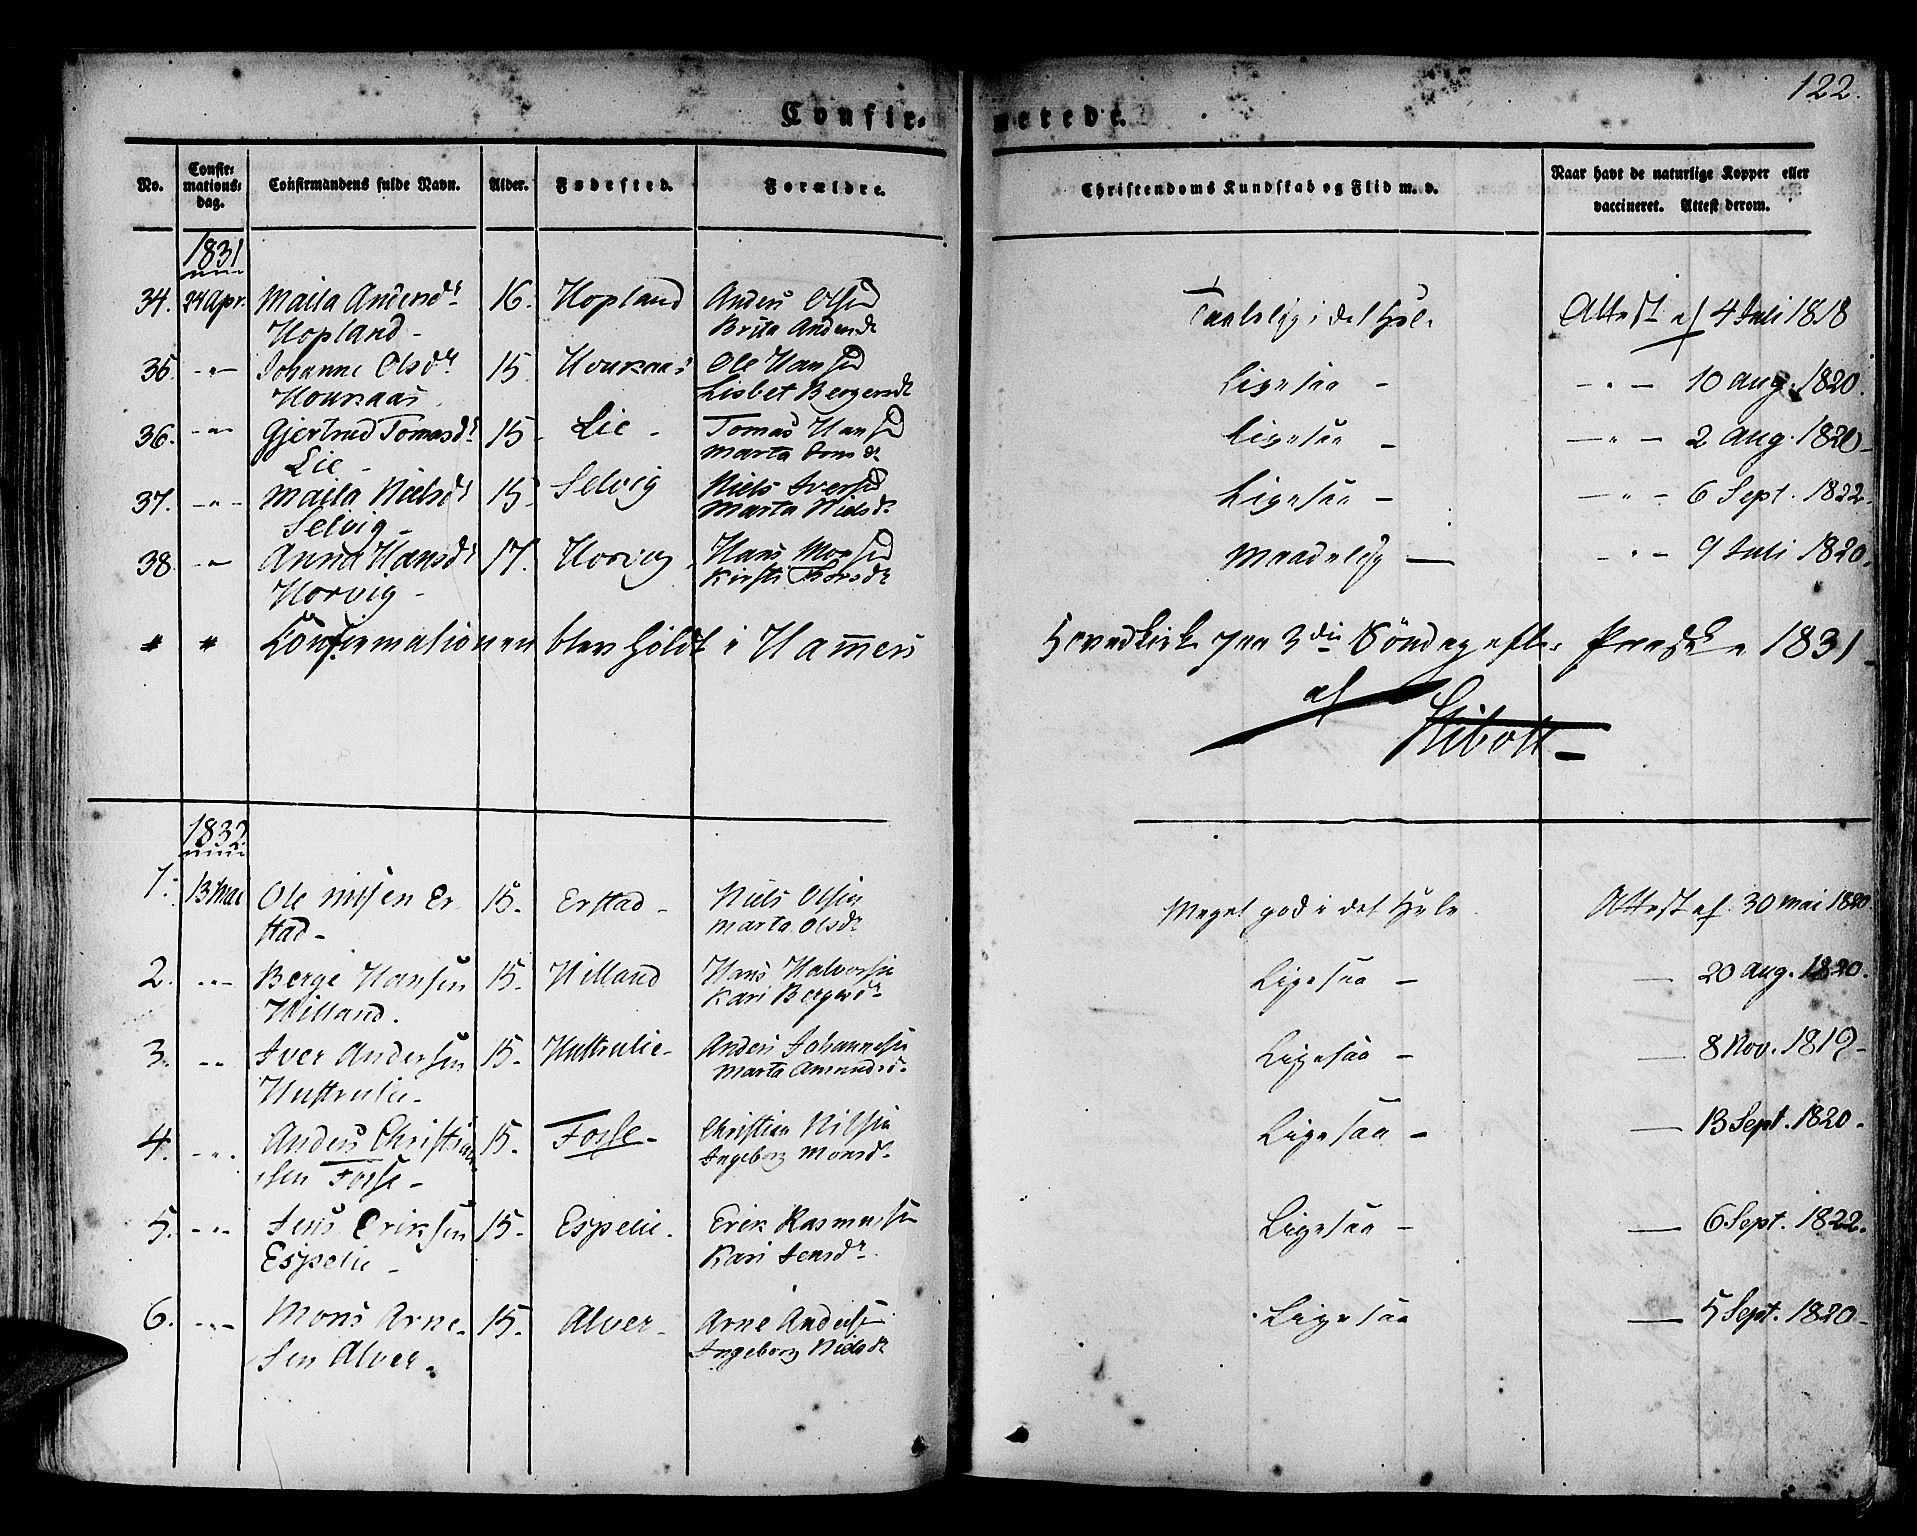 122.
Confir-
merede.
No.
Confir-
mations-
dag.
Confirmandens fulde Navn.
Alder.
Fødested.
Forældre.
Christendoms Kundskab og Flid m. v.
Naar havt de naturlige Kopper eller
vaccineret. Attest derom.
1831
34. 24 Apr. 16. Hopland Anders Olsen
Taalelig i det Hele Attest af 4 Juli 1818
Hopland - Brita Andersdr
35. -"- Johanne Olsdr 15. Ole Hansen
Ligesaa - -"- 10 Aug. 1820.
Lisbet Bergersdr
36. -"- Gjertrud Tomasdr 15. Lie - Tomas Hansen
Ligesaa - -"- 2 Aug. 1820-
Lie - Marta Jonsdr
37. -"- Nielsdr 15. Selvig Niels Iversen
Ligesaa - -"- 6 Sept. 1822-
Selvig - Marta Nielsdr
38. -"- Anna Hansdr 17. Horvig Hans Monsen
Maadelig - -"- 9 Juli 1820.
Horvig - Kirsti
Confirmationen blev holdt i Hammers
Hovedkirke paa 3die Søndag efter Paaske 1831-
af
Stibolt-
1832
1. 13 Mai Ole Nilsen Er- 15. Erstad - Niels Olsen
Meget god i det Hele. Attest af 30 Mai 1820
stad - Marta Olsdr
2. -"- Berge Hansen 15. Hilland Hans Halvorsen
Ligesaa - - 20 Aug. 1820.
Hilland. Kari Bergersdr
3. -"- Iver Andersen 15. Hustrulie - Anders Johannesen
Ligesaa - - 8 Nov. 1819-
Hustrulie - Marta Amundsd.
4. -"- Anders Christian- 15. Fosse - Christian Nilsen
Ligesaa - - 13 Sept. 1820-
sen Fosse - Ingeborg Monsd.
5. -"- Jens Eriksen 15. Espelie. Erik Rasmussen
Ligesaa - - 6 Sept. 1822.
Espelie - Kari Jensdr
6. -"- Mons Arne- 15. Alver - Arne Andersen
Ligesaa - 5 Sept. 1820-
sen Alver. Ingeborg Nielsdr